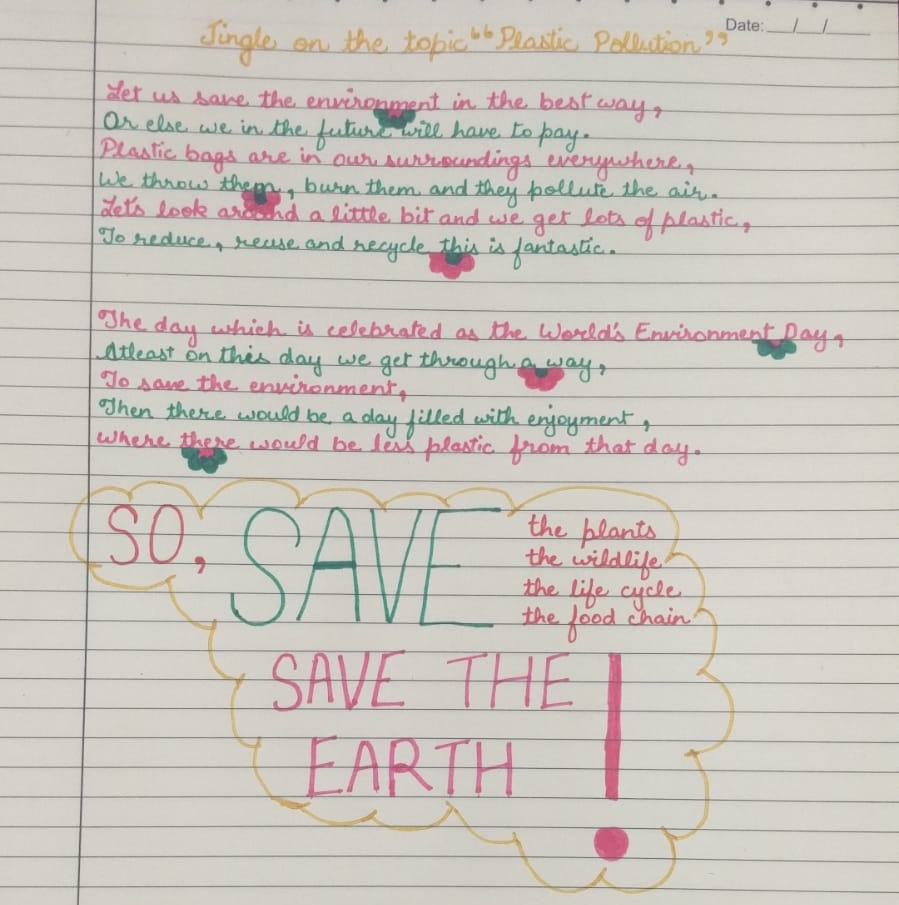 Date: __/__/____
Jingle on the topic "Plastic Pollution"
Let us save the environment in the best way,
Or else we in the future will have to pay.
Plastic bags are in our surroundings everywhere,
We throw them, burn them and they pollute the air.
Let's look around a little bit and we get lots of plastic,
To reduce, reuse and recycle this is fantastic.
The day which is celebrated as the World's Environment Day,
Atleast on this day we get through a way,
To save the environment,
Then there would be a day filled with enjoyment,
Where there would be less plastic from that day.
SO, SAVE
the plants
the wildlife
the life cycle
the food chain
SAVE THE
EARTH !